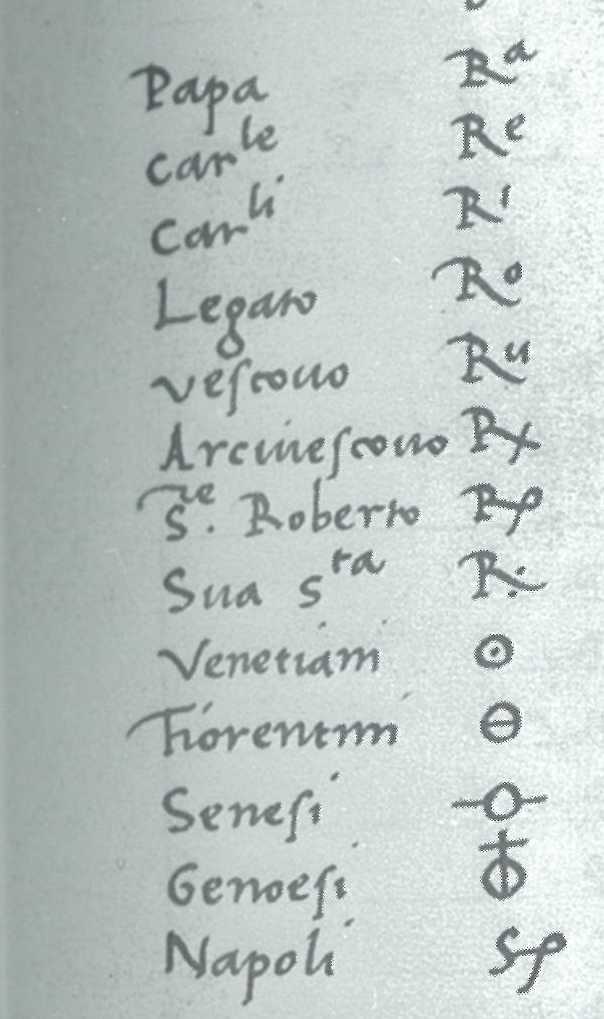 Papa Ra
Carle Re
Carli Ri
Legato Ro
vescouo Ru
Arciuescouo
Sre. Roberto
Sua Sta
Venetiani
Fiorentini
Senesi
Genoesi
Napoli